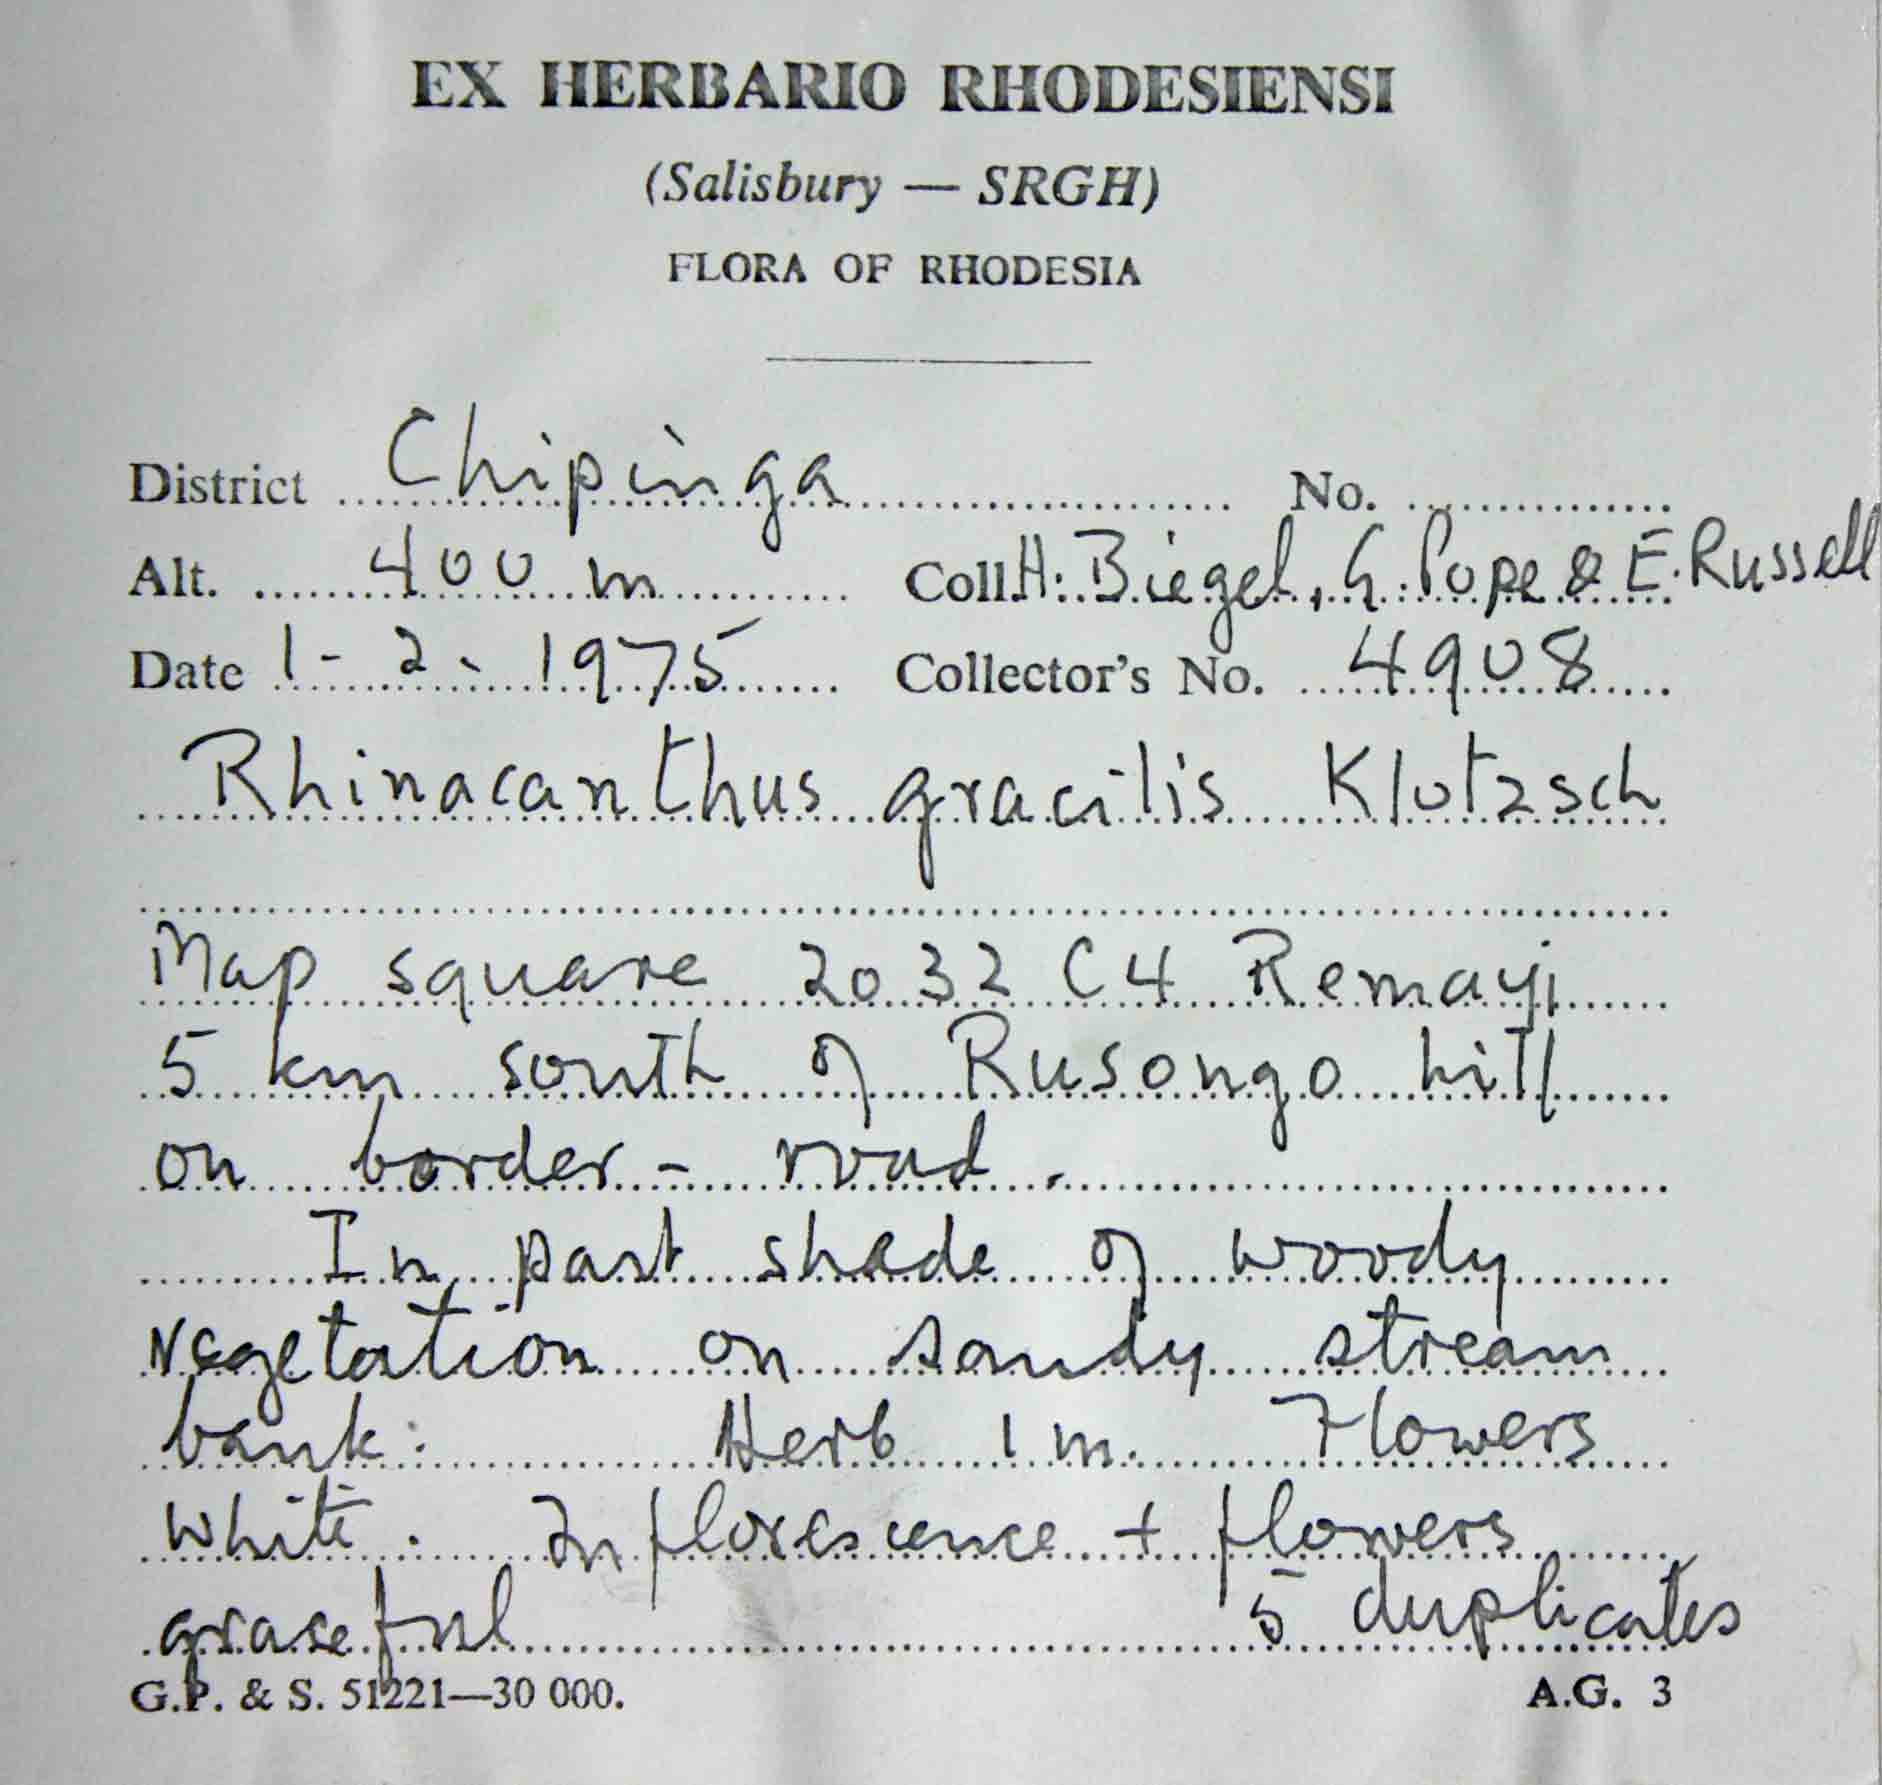 EX HERBARIO RHODESIENSI
(Salisbury — SRGH)
FLORA OF RHODESIA
District Chipinga No.
Alt. 400 m Coll. H. Biegel, G. Pope & E. Russell
Date 1-2-1975 Collector's No. 4908
Rhinacanthus gracilis Klotzsch
Map square 2032 C4 Remayi
5 km south of Rusongo hill
on border-road.
In part shade of woody
vegetation on sandy stream
bank. Herb 1 m. Flowers
white. Inflorescence + flowers
graseful 5 duplicates
G.P. & S. 51221—30 000. A.G. 3